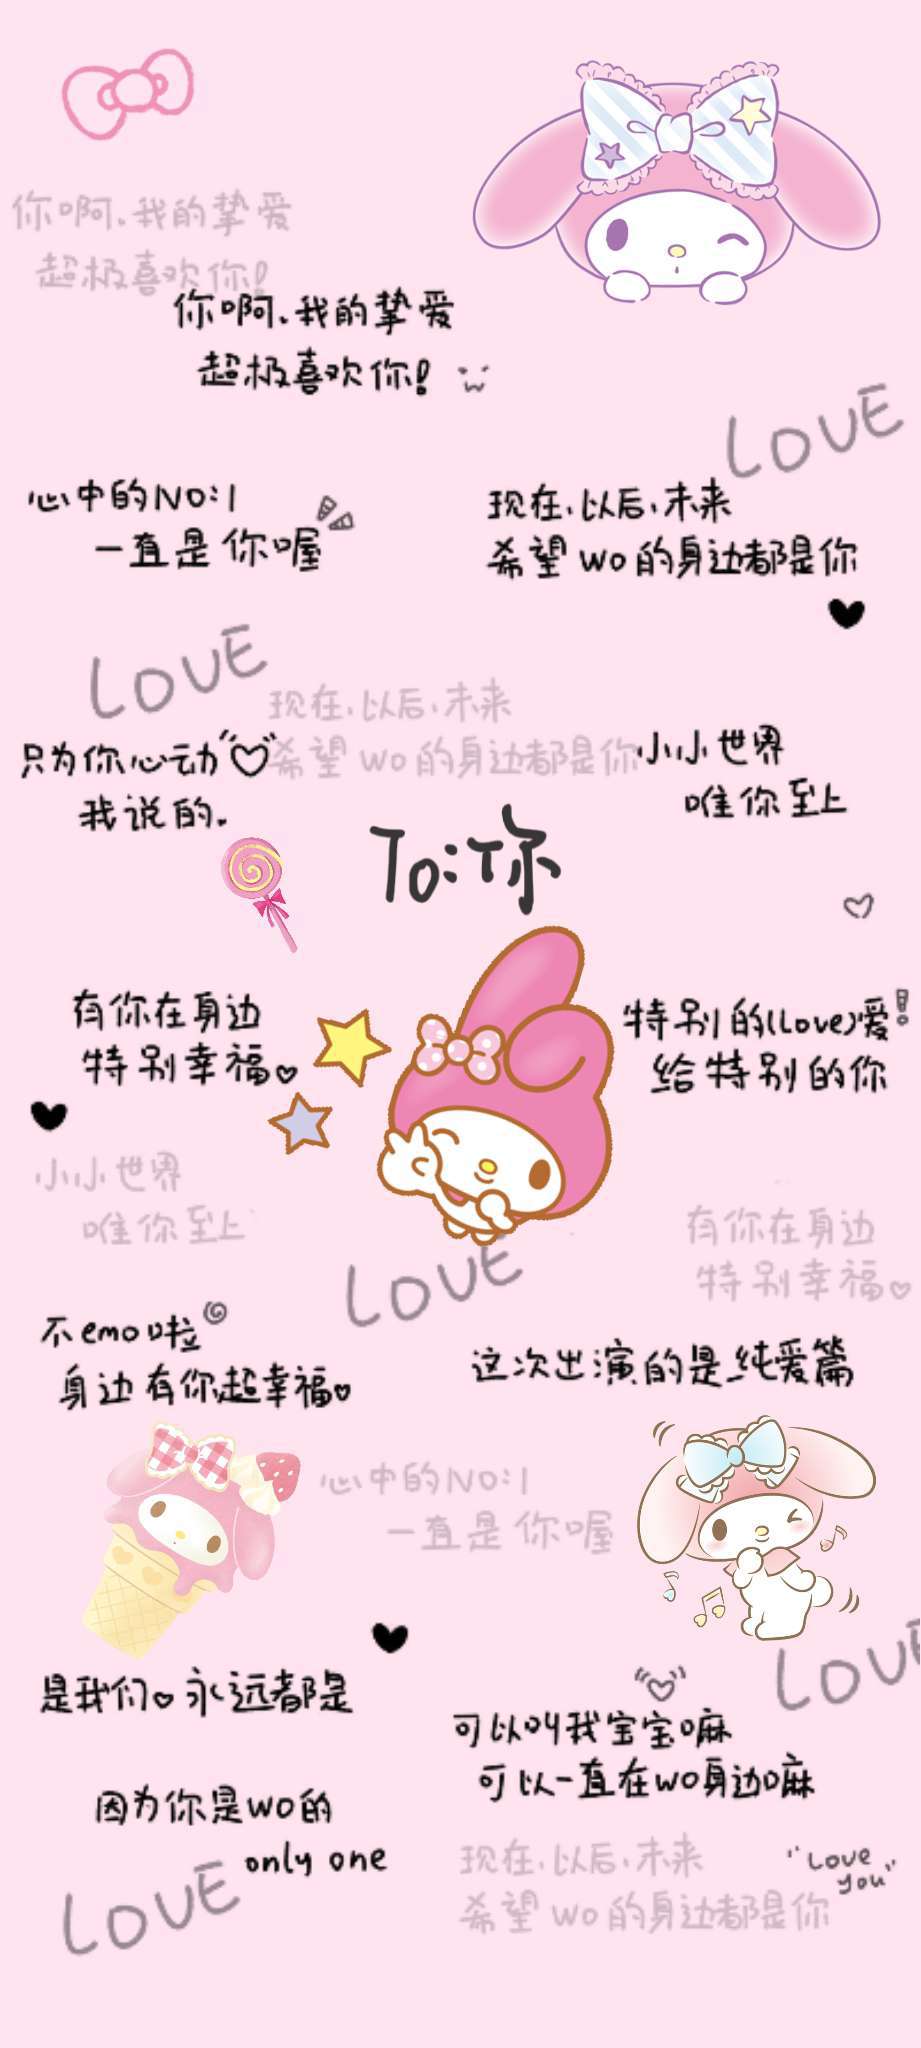 你啊.我的挚爱
超极喜欢你!
你啊.我的挚爱
超极喜欢你!
LOVE
心中的NO:1
一直是你喔
现在、以后、未来
希望wo的身边都是你
LOVE
现在、以后、未来
希望wo的身边都是你
只为你心动
我说的.
小小世界
唯你至上
To:你
有你在身边
特别幸福
特别的(Love)爱!
给特别的你
小小世界
唯你至上
有你在身边
特别幸福
LOVE
不emo啦
身边有你超幸福
这次出演的是纯爱篇
心中的NO:1
一直是你喔
LOVE
是我们 永远都是
可以叫我宝宝嘛
可以一直在wo身边嘛
因为你是wo的
only one
LOVE
现在、以后、未来
希望wo的身边都是你
"Love
you"